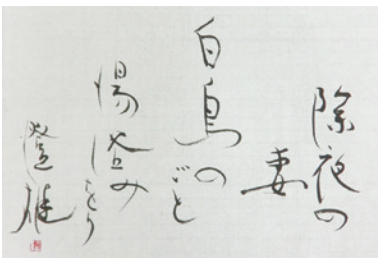 除夜の
妻
白鳥のごと
湯浴みをり
澄雄